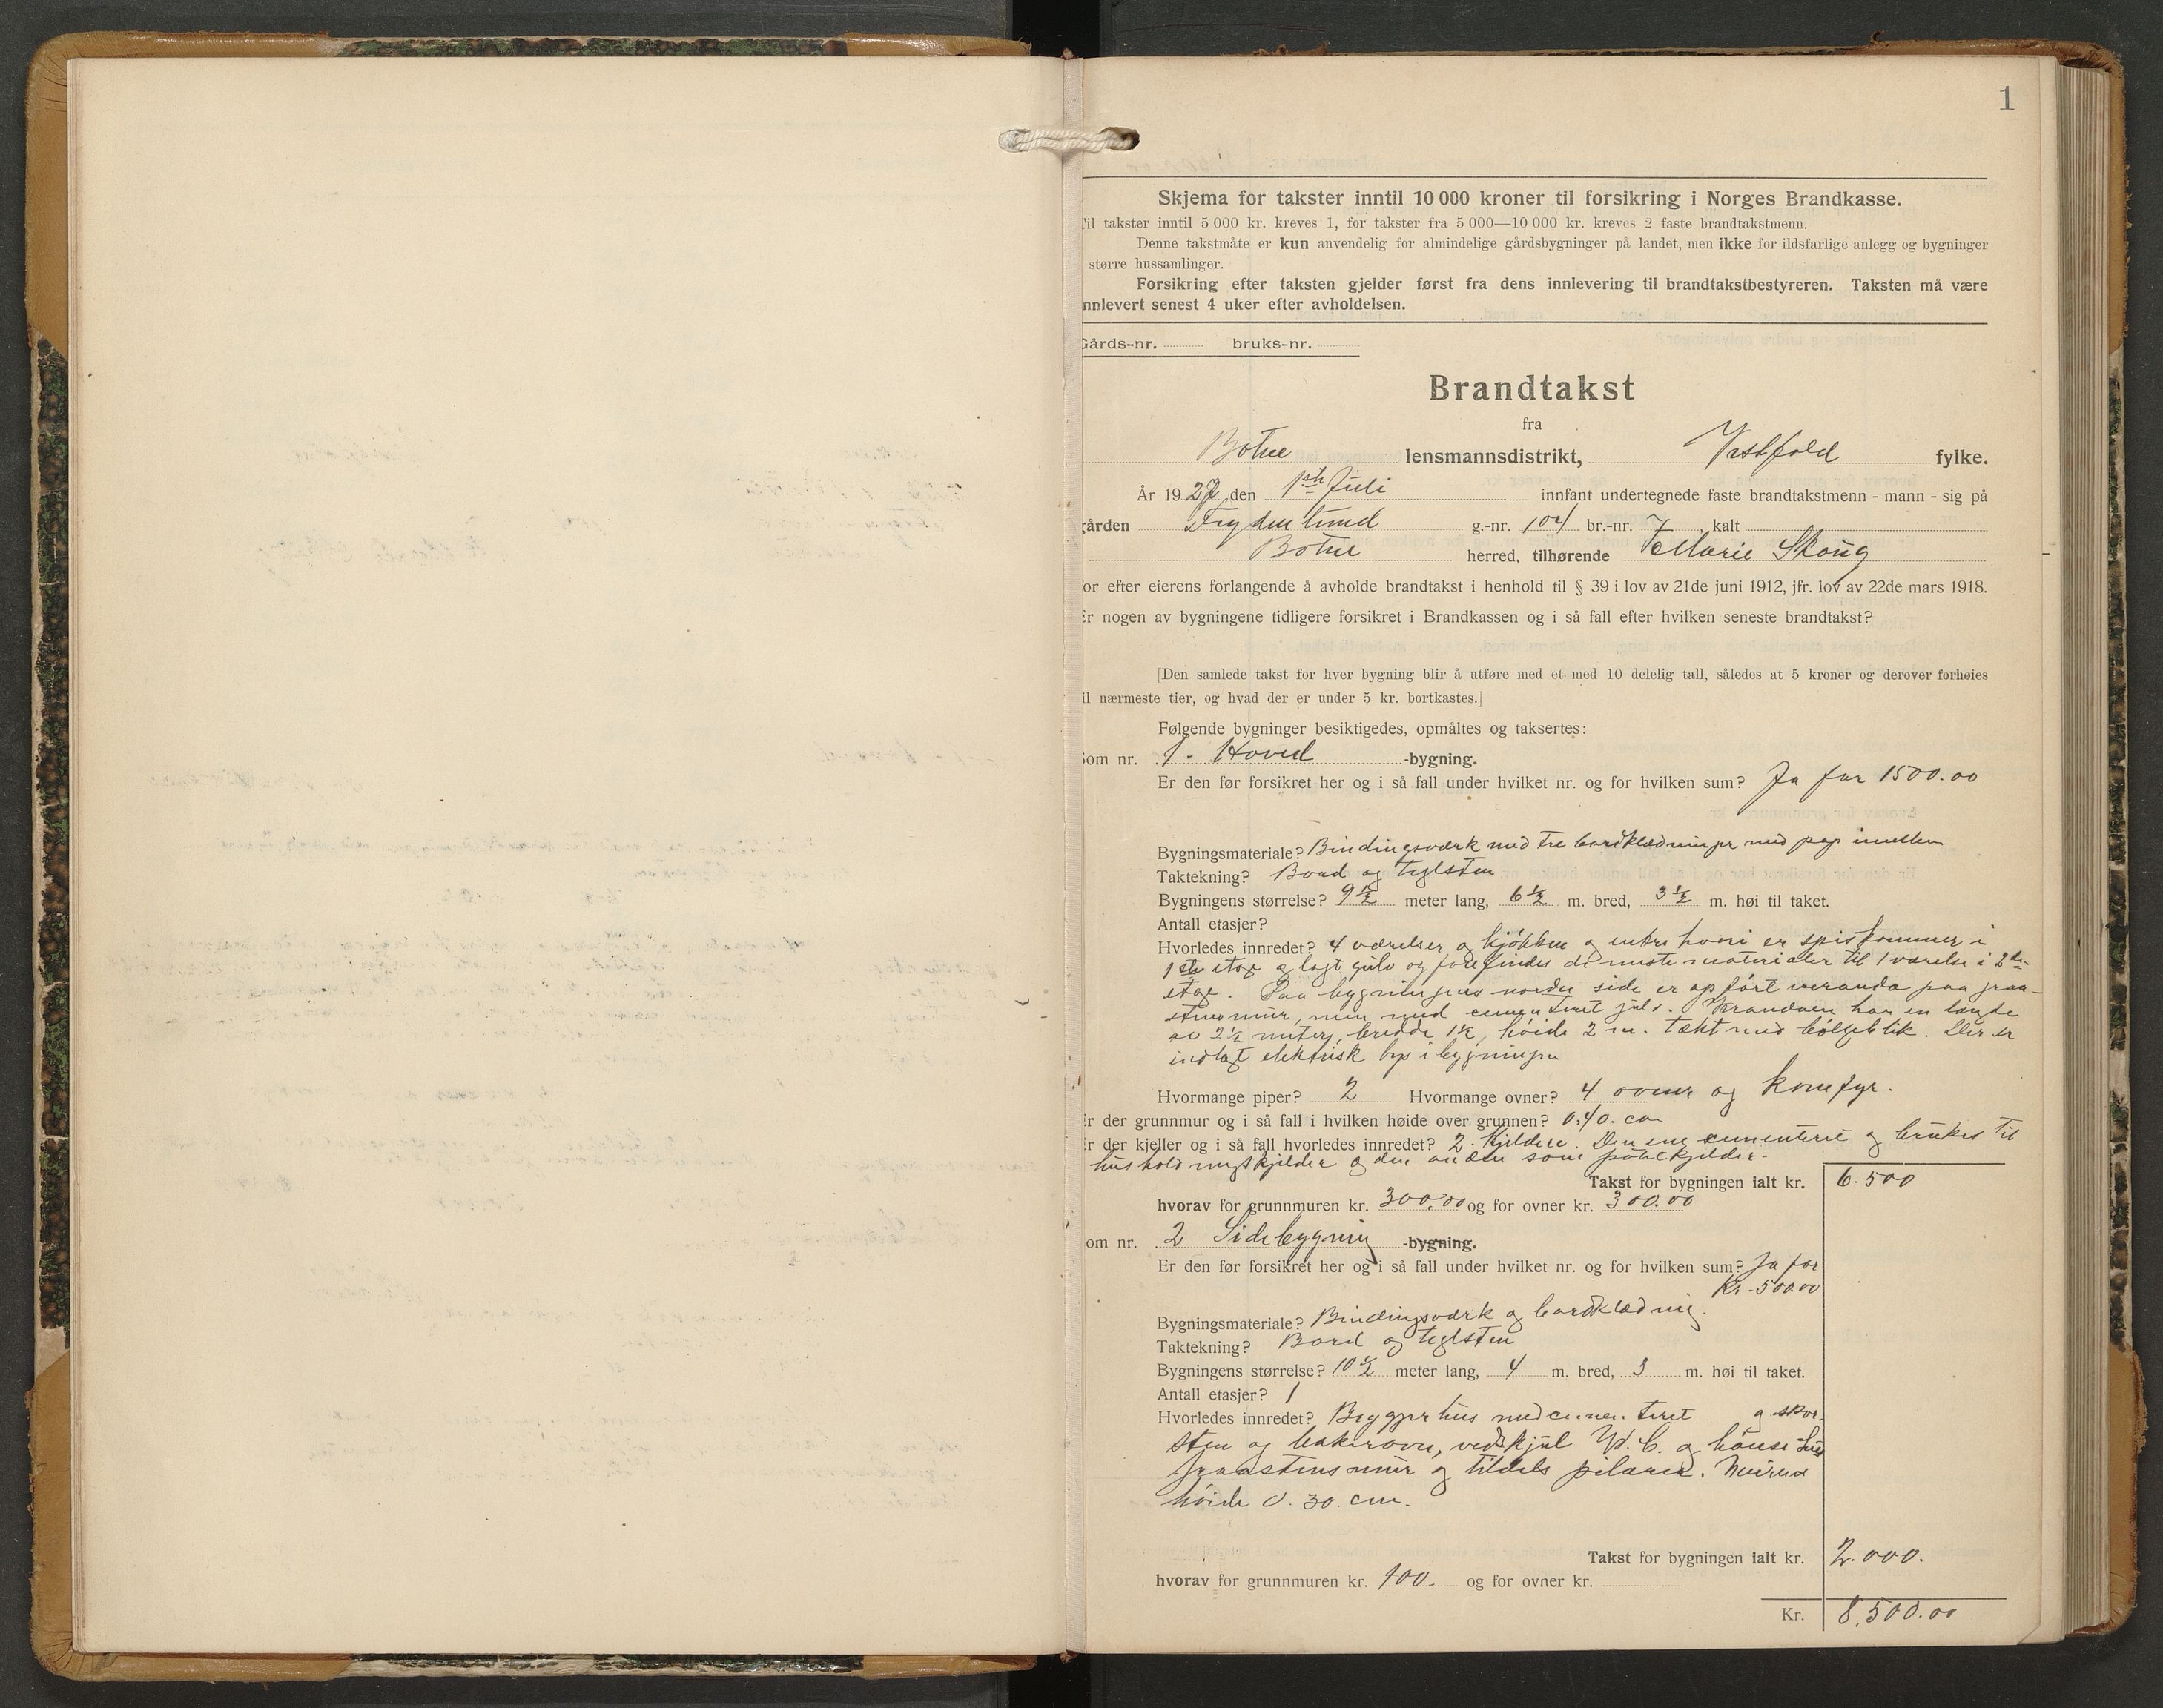 1
Skjema for takster inntil 10 000 kroner til forsikring i Norges Brandkasse.
Til takster inntil 5 000 kr. kreves 1, for takster fra 5 000—10 000 kr. kreves 2 faste brandtakstmenn.
Denne takstmåte er kun anvendelig for almindelige gårdsbygninger på landet, men ikke for ildsfarlige anlegg og bygninger
større hussamlinger.
Forsikring efter taksten gjelder først fra dens innlevering til brandtakstbestyreren. Taksten må være
innlevert senest 4 uker efter avholdelsen.
Gårds-nr. bruks-nr.
Brandtakst
fra
Botne lensmannsdistrikt, Vestfold fylke.
År 1927 den 1ste Juli innfant undertegnede faste brandtakstmenn - mann - sig på
gården Frydenlund g.-nr. 104 br.-nr. 7 kalt
Botne herred, tilhørende Marie Skoug
for efter eierens forlangende å avholde brandtakst i henhold til § 39 i lov av 21de juni 1912, jfr. lov av 22de mars 1918.
Er nogen av bygningene tidligere forsikret i Brandkassen og i så fall efter hvilken seneste brandtakst?
[Den samlede takst for hver bygning blir å utføre med et med 10 delelig tall, således at 5 kroner og derover forhøies
til nærmeste tier, og hvad der er under 5 kr. bortkastes.]
Følgende bygninger besiktigedes, opmåltes og taksertes:
Som nr. 1. Hoved -bygning.
Er den før forsikret her og i så fall under hvilket nr. og for hvilken sum? Ja for 1500.00
Bygningsmateriale? Bindingsværk med tre bordklædninger med pap imellem
Taktekning? Bord og teglsten
Bygningens størrelse? 9 1/2 meter lang, 6 1/2 m. bred, 3 1/2 m. høi til taket.
Antall etasjer?
Hvorledes innredet? 4 værelser og kjøkken og entre hvori er spiskammer i
1ste etage og lagt gulv og forefindes de meste materialer til 1 værelse i 2den
etage. Paa bygningens nordre side er opført veranda paa graa-
stensmur, men med cementeret gulv. Verandaen har en længde
av 2 1/2 meter, bredde 1 1/2, høide 2 m. tækt med bølgeblik. Der er
indlagt elektrisk lys i bygningen
Hvormange piper? 2 Hvormange ovner? 4 ovner og komfyr.
Er der grunnmur og i så fall i hvilken høide over grunnen? 0.40. cm
Er der kjeller og i så fall hvorledes innredet? 2 Kjeldere. Den ene cementeret og brukes til
husholdningskjelder og den anden som potetkjelder.
Takst for bygningen ialt kr. 6.500
hvorav for grunnmuren kr. 300.00 og for ovner kr. 300.00
Som nr. 2 Sidebygning -bygning.
Er den før forsikret her og i så fall under hvilket nr. og for hvilken sum? Ja for
Kr. 500.00
Bygningsmateriale? Bindingsværk og bordklædning.
Taktekning? Bord og teglsten
Bygningens størrelse? 10 1/2 meter lang, 4 m. bred, 3 m. høi til taket.
Antall etasjer? 1
Hvorledes innredet? Bryggerhus med cementeret og skor-
sten og bakerovn, vedskjul W.C. og hønsehus
Graastensmur og tildels pilarer. Murens
høide 0.30. cm.
Takst for bygningen ialt kr. 2.000.
hvorav for grunnmuren kr. 100. og for ovner kr.
Kr. 8.500.00